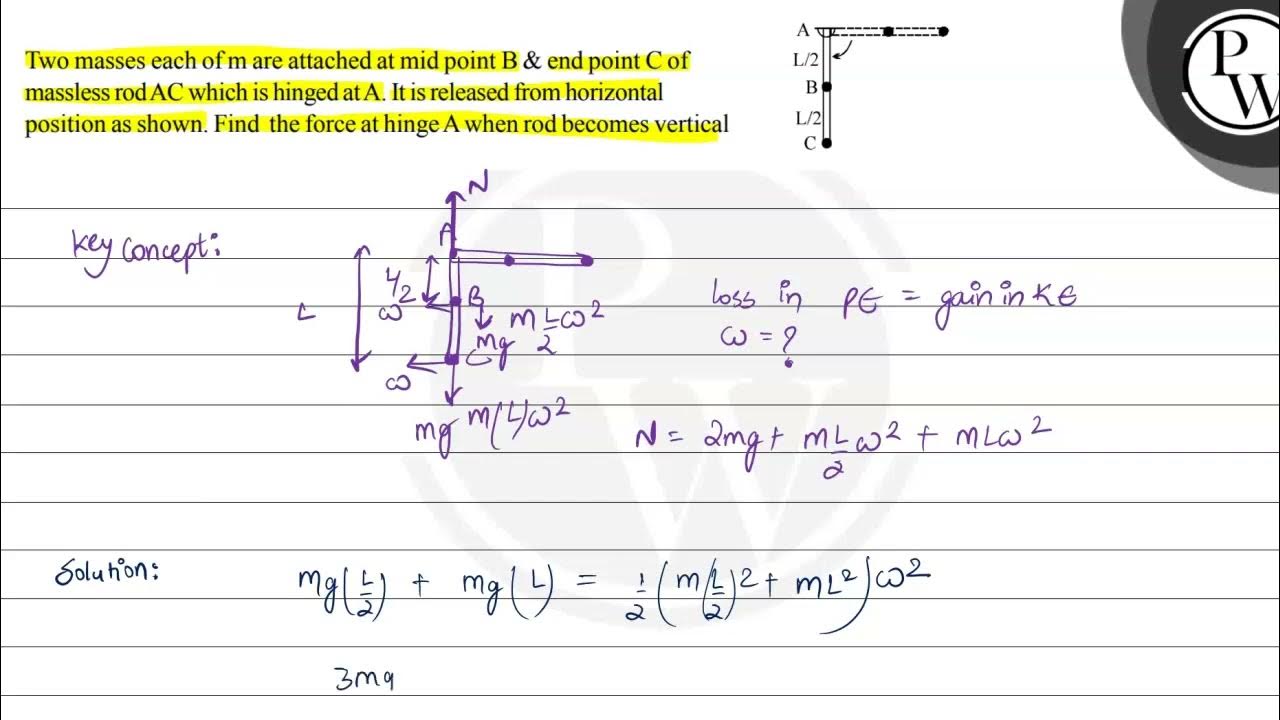 Two masses each of m are attached at mid point B & end point C of
massless rod AC which is hinged at A. It is released from horizontal
position as shown. Find the force at hinge A when rod becomes vertical
A
L/2
B
L/2
C
P
W
N
A
Key Concept:
L/2
L
ω
B
m L/2 ω²
mg
C
ω
mg m(L)ω²
loss in PE = gain in KE
ω = ?
N = 2mg + m L/2 ω² + mLω²
Solution:
mg(L/2) + mg(L) = 1/2 (m(L/2)2 + mL²)ω²
3mg
P
W